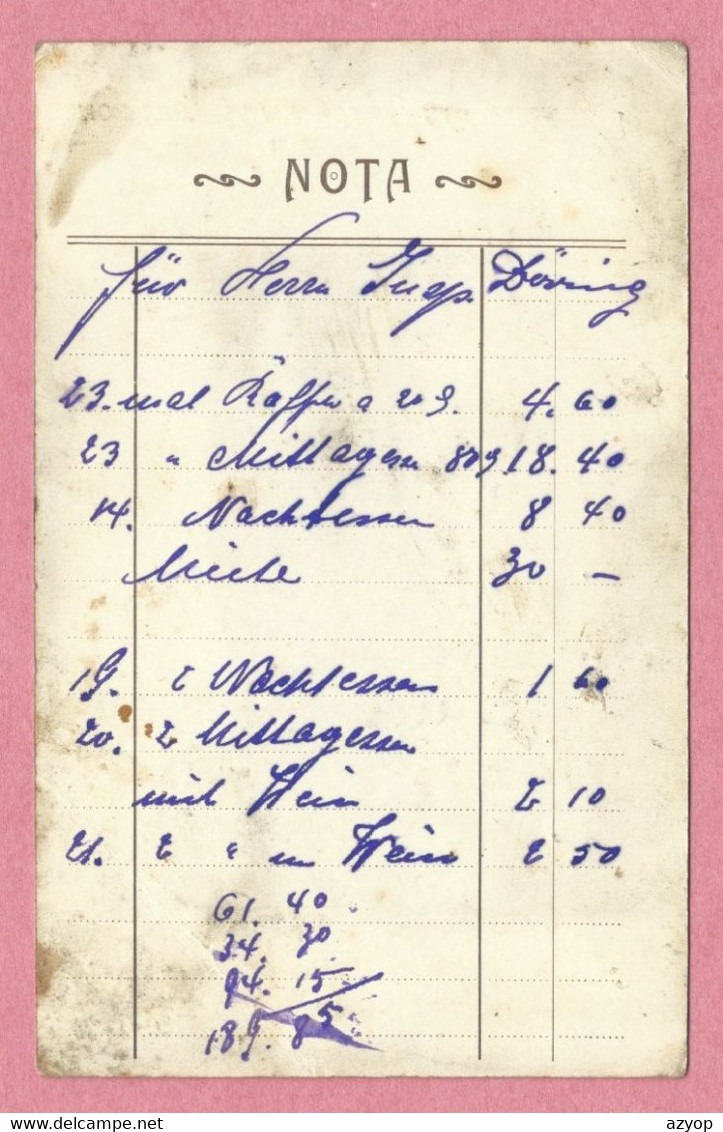 NOTA
für Herrn Insp. Döring
23. mal Kaffee a 20 ₰. 4. 60
23 " Mittagessen 80 ₰ 18. 40
14. Nachtessen 8 40
Miete 30 —
19. 2 Nachtessen 1 60
20. 2 Mittagessen
mit Wein 2 10
21. 2 " m Wein 2 50
61. 40
34. 30
94. 15
189. 85
www.delcampe.net
azyop